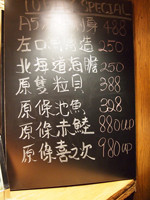 TODAY SPECIAL
A5 488
左口魚 造 250
北海道馬糞 250
原隻粒貝 388
原條池魚 328
原條赤鯥 880UP
原條喜之次 980UP